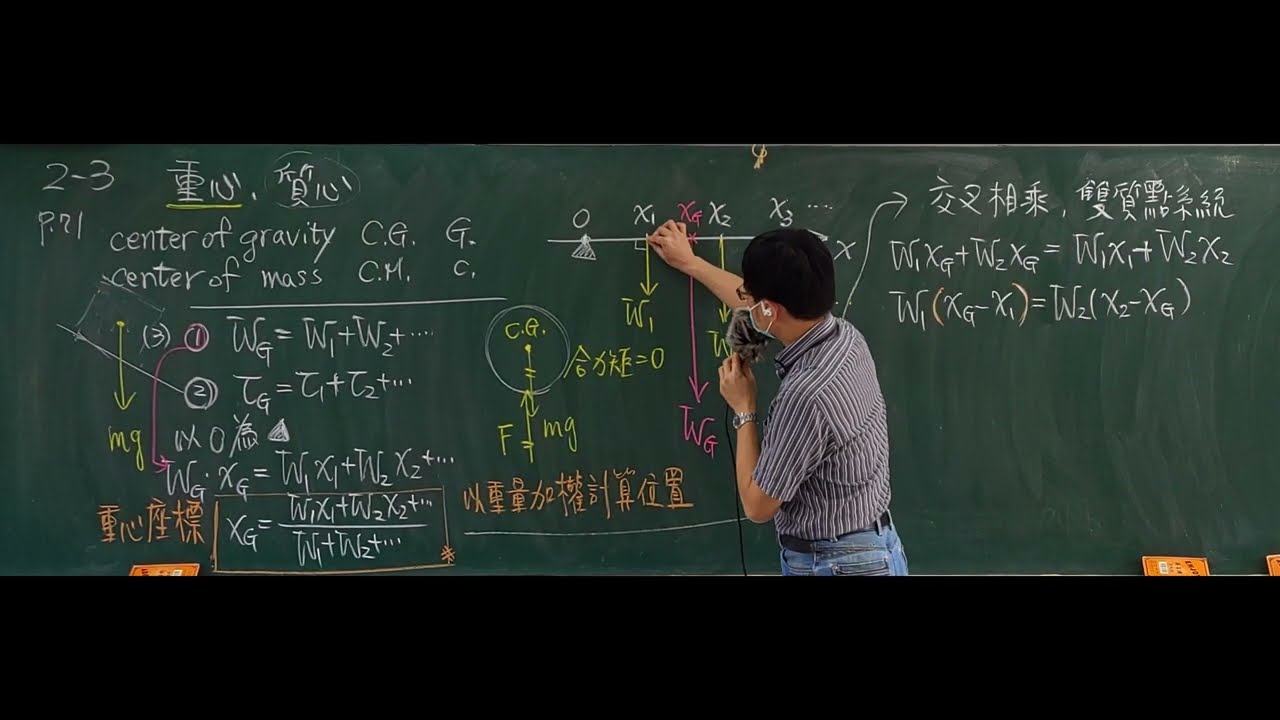 2-3 重心、質心
P.71
center of gravity C.G. G.
center of mass C.M. C.
(3) ① W_G = W₁+W₂+‥‥
② τ_G = τ₁+τ₂+‥‥
mg
以O為
W_G·x_G = W₁x₁+W₂x₂+‥‥
重心座標 x_G = (W₁x₁+W₂x₂+‥‥)/(W₁+W₂+‥‥) *
C.G.
合力矩=0
F mg
以重量加權計算位置
O x₁ x_G x₂ x₃ ‥‥
x
W₁ W
W_G
交叉相乘,雙質點系統
W₁x_G+W₂x_G = W₁x₁+W₂x₂
W₁(x_G-x₁)=W₂(x₂-x_G)